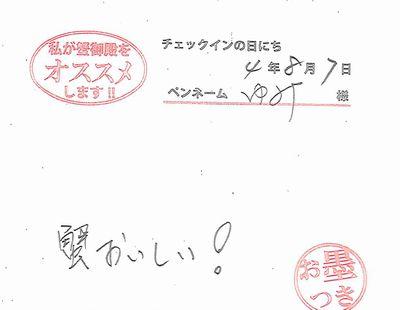 私が蟹御殿を
オススメ
します!!
チェックインの日にち
4年8月7日
ペンネーム ゆみ 様
蟹おいしい!
お墨
つき